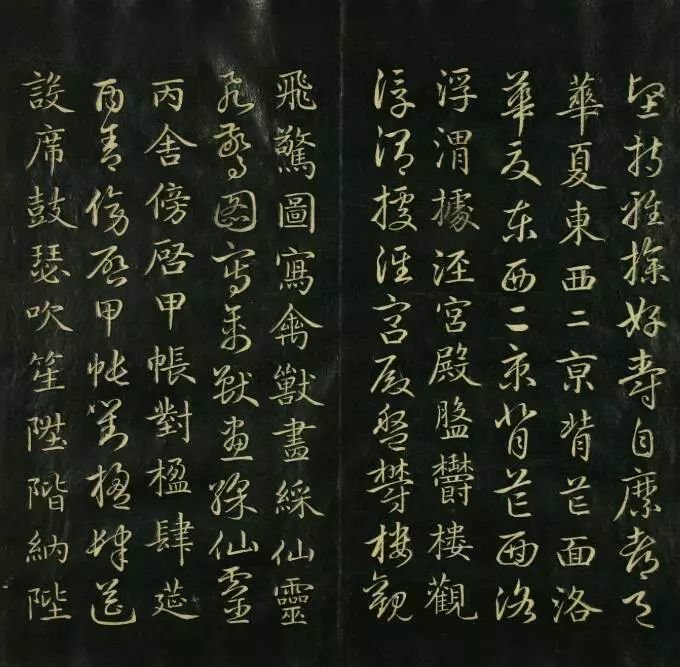 堅持雅操好爵自縻都邑
華夏東西二京背芒面洛
華夏東西二京背芒面洛
浮渭據涇宮殿盤鬱樓觀
浮渭據涇宮殿盤鬱樓觀
飛驚圖寫禽獸畫綵仙靈
飛驚圖寫禽獸畫綵仙靈
丙舍傍啓甲帳對楹肆筵
丙舍傍啓甲帳對楹肆筵
設席鼓瑟吹笙陞階納陛